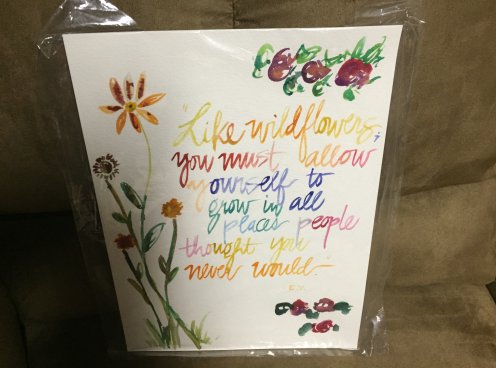 "Like wildflowers;
you must allow
yourself to
grow in all
places people
thought you
never would."
E.V.